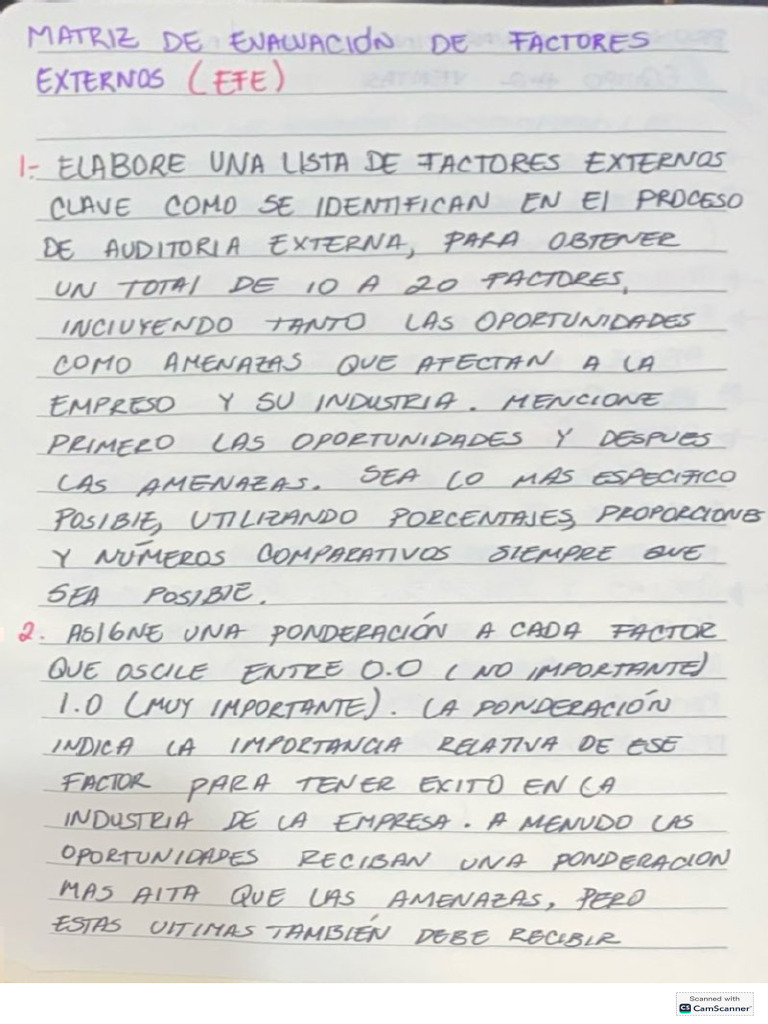 MATRIZ DE EVALUACIÓN DE FACTORES
EXTERNOS (EFE)
1- ELABORE UNA LISTA DE FACTORES EXTERNOS
CLAVE COMO SE IDENTIFICAN EN El PROCESO
DE AUDITORIA EXTERNA, PARA OBTENER
UN TOTAl DE 10 A 20 FACTORES,
INCLUYENDO TANTO LAS OPORTUNIDADES
COMO AMENAZAS QUE AFECTAN A LA
EMPRESO Y SU INDUSTRIA. MENCIONE
PRIMERO LAS OPORTUNIDADES Y DESPUES
LAS AMENAZAS. SEA LO MAS ESPECIFICO
POSIBlE, UTILIZANDO PORCENTAJES, PROPORCIONES
Y NÚMEROS COMPARATIVOS SIEMPRE QUE
SEA POSIBlE.
2. ASIGNE UNA PONDERACIÓN A CADA FACTOR
QUE OSCILE ENTRE 0.0 (NO IMPORTANTE)
1.0 (MUY IMPORTANTE). LA PONDERACIÓN
INDICA LA IMPORTANCIA RELATIVA DE ESE
FACTOR PARA TENER EXITO EN LA
INDUSTRIA DE LA EMPRESA. A MENUDO LAS
OPORTUNIDADES RECIBAN UNA PONDERACION
MAS AlTA QUE LAS AMENAZAS, PERO
ESTAS UlTIMAS TAMBIÉN DEBE RECIBIR
Scanned with
CS CamScanner